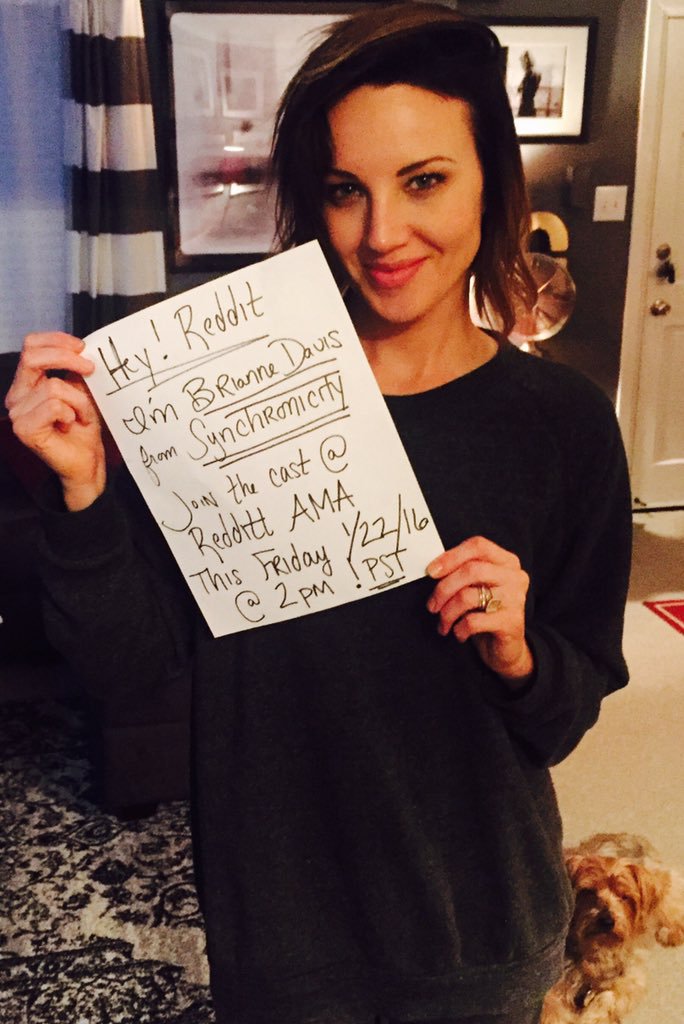 Hey! Reddit
I'm Brianne Davis
from Synchronicity
Join the cast @
Redditt AMA
This Friday 1/22/16
@ 2pm! PST